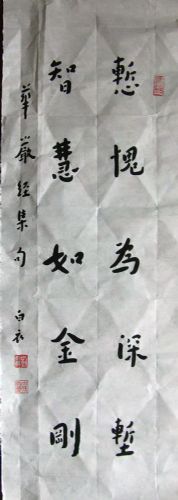 慙愧為深塹
智慧如金剛
華嚴經集句
白衣